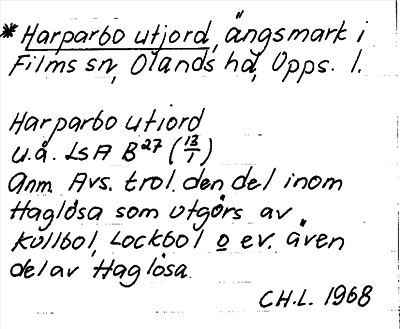 *Harparbo utjord, ängsmark i
Films sn, Olands hd, Upps. l.
Harparbo utiord
u.å. LSA B27 (13/1)
Anm. Avs. trol. den del inom
Haglösa som utgörs av
Kullbol, Lockbol o ev. även
del av Haglösa.
CH.L. 1968